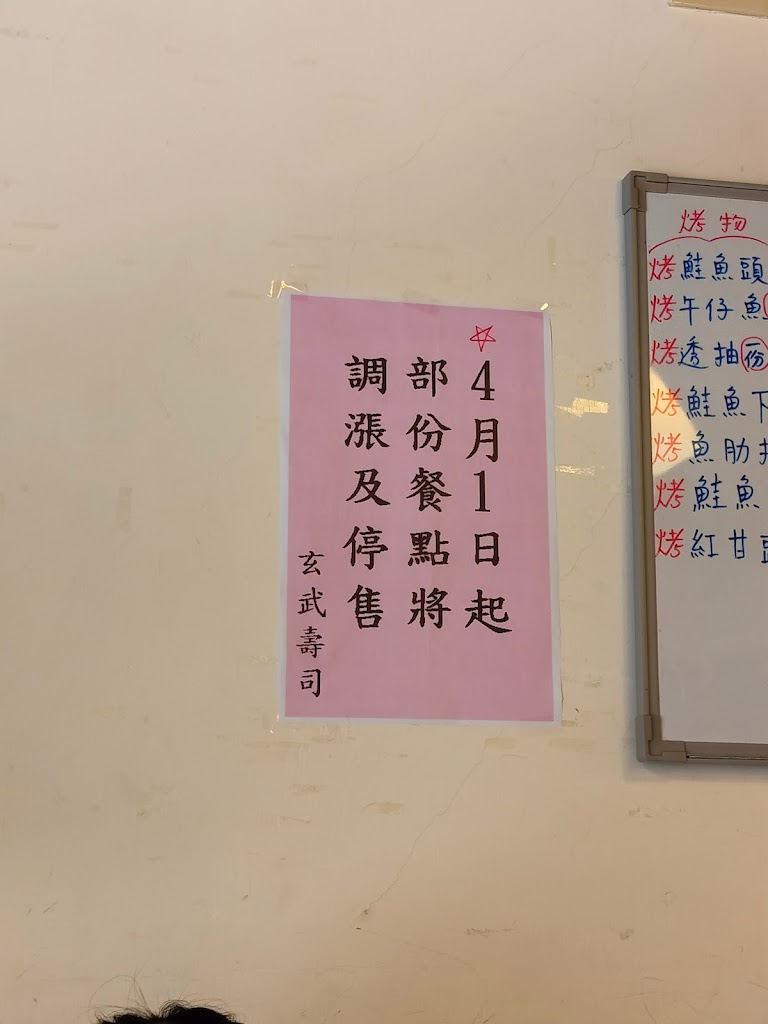 4月1日起
部份餐點將
調漲及停售
玄武壽司
烤物
烤鮭魚頭
烤午仔魚
烤透抽份
烤鮭魚下
烤魚肋
烤鮭魚
烤紅甘